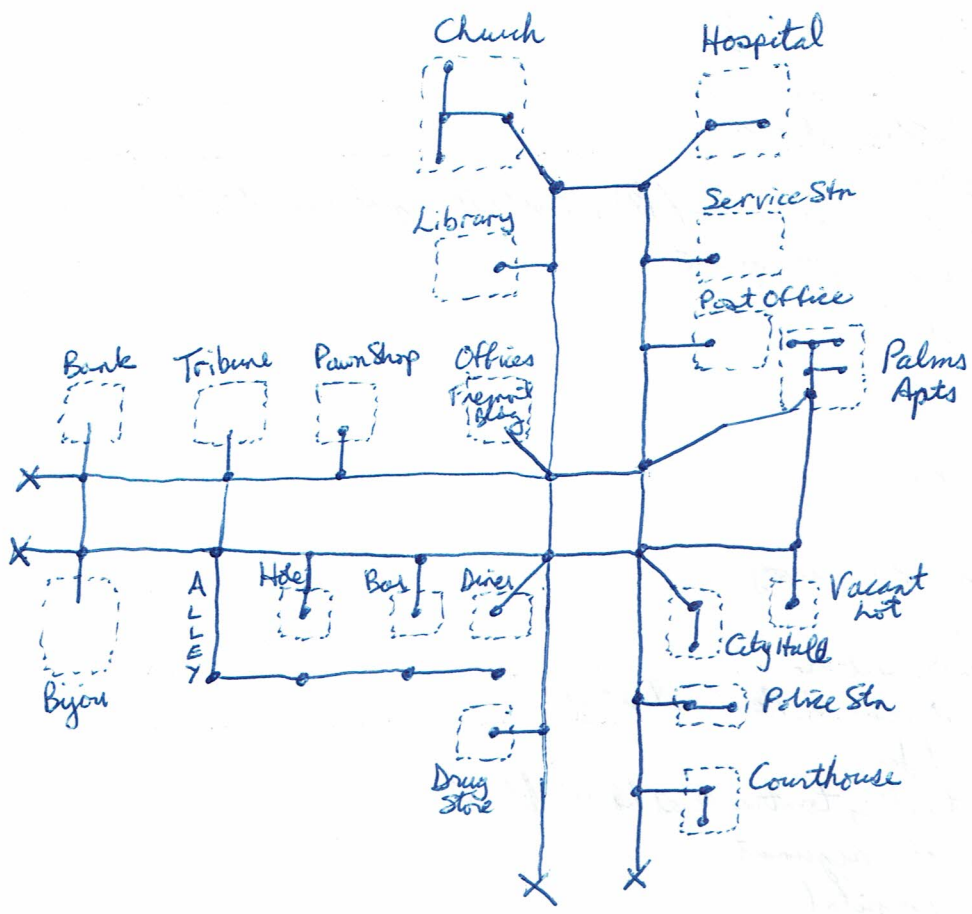 Church
Hospital
Library
Service Stn
Post Office
Bank
Tribune
Pawn Shop
Offices
Fremont
Bldg
Palms
Apts
X
X
ALLEY
Hotel
Bar
Diner
Vacant
Lot
City Hall
Bijou
Police Stn
Drug
Store
Courthouse
X
X